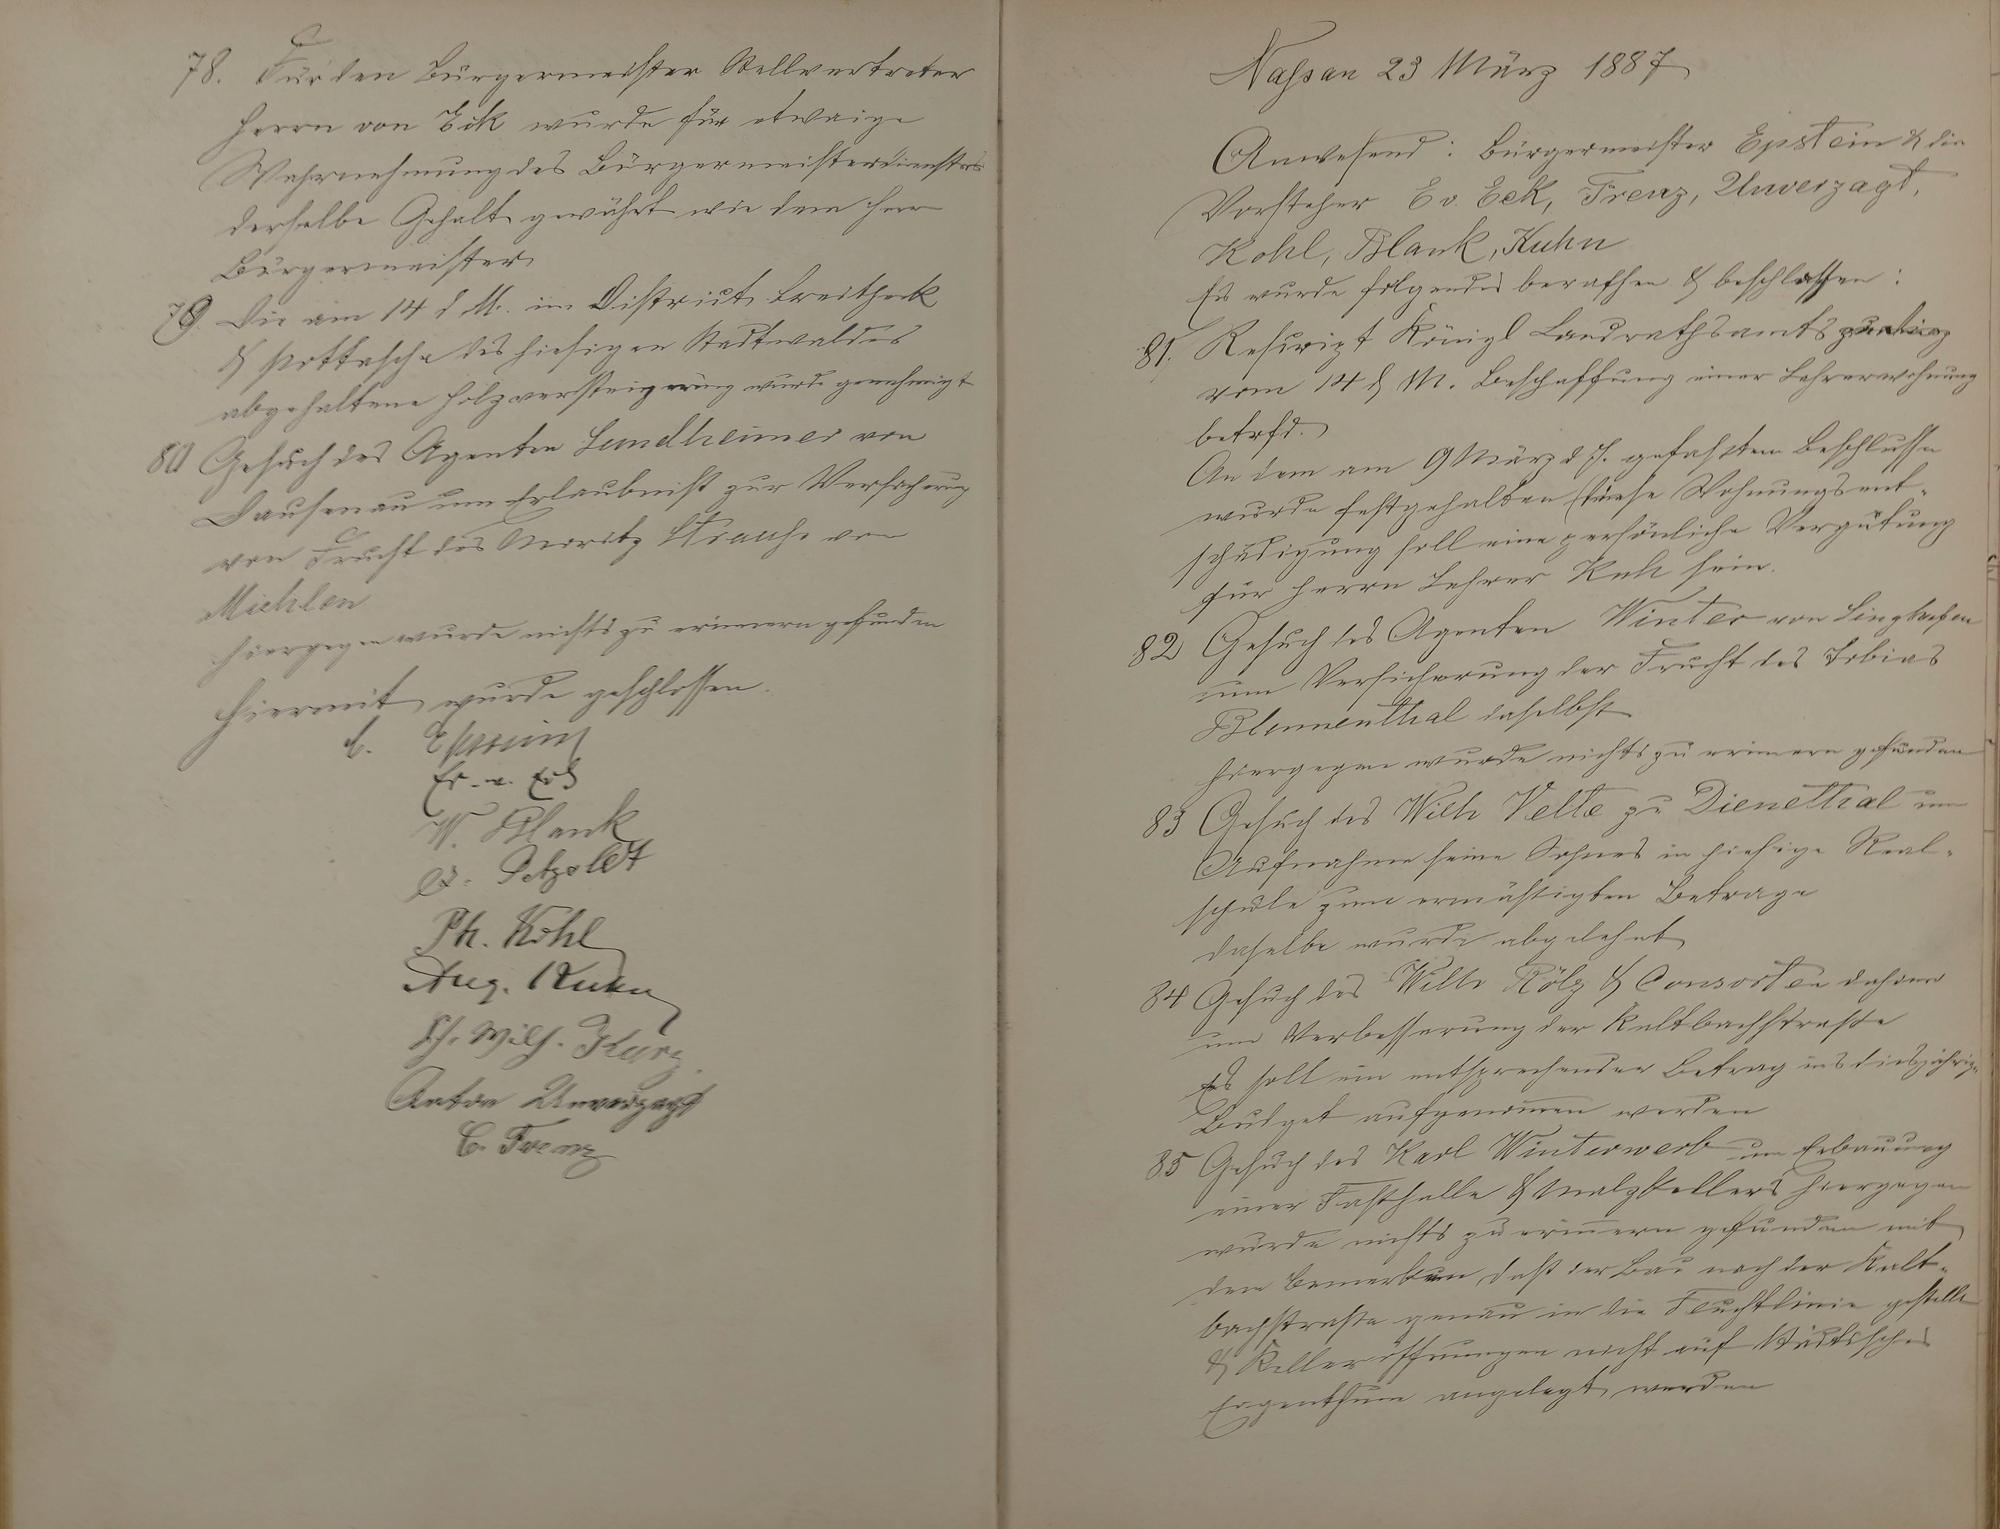 78. Für den Bürgermeister Stellvertreter
Herrn von Eck wurde für etwaige
Wahrnehmung des Bürgermeisterdienstes
derselbe Gehalt gewährt wie dem Herr
Bürgermeister
79. Die am 14 d M. im District Breitheck
& Pottasche des hiesigen Stadtwaldes
abgehaltene Holzversteigerung wurde genehmigt
80 Gesuch des Agenten Landheimer von
Dausenau um Erlaubniß zur Versicherung
von Frucht des Moritz Strauß von
Miehlen
Hiergegen wurde nichts zu erinnern gefunden
Hiermit wurde geschlossen.
Epstein
E. v. Eck
W. Blank
Petzoldt
Ph. Kohl
Aug. Kuhn
Ph. Wilh. Kurz
Anton Unverzagt
C. Frenz
Nassau 23 März 1887
Anwesend: Bürgermeister Epstein & die
Vorsteher E v. Eck, Frenz, Unverzagt,
Kohl, Blank, Kuhn
Es wurde folgendes berathen & beschlossen:
81. Rescript Königl Landrathsamts
vom 14 d M. Beschaffung einer Lehrerwohnung
betrfd.
An dem am 9 März d J. gefaßten Beschlusse
wurde festgehalten diese Wohnungsent-
schädigung soll eine persönliche Vergütung
für Herrn Lehrer Kuh sein.
82 Gesuch des Agenten Winter von Singhofen
um Versicherung der Frucht des Tobias
Blumenthal daselbst
Hiergegen wurde nichts zu erinnern gefunden
83 Gesuch des Wilh Velte zu Dienethal um
Aufnahme seine Sohnes in hiesige Real-
schule zum ermäßigten Betrage
daselbe wurde abgelehnt
84 Gesuch des Wilh Rölz & Consorten dahier
um Verbesserung der Kaltbachstraße
Es soll ein entsprechender Betrag ins diesjährige
Budget aufgenomen werden
85 Gesuch des Karl Winterwerb um Erbauung
einer Faßhalle & Malzkellers hiergegen
wurde nichts zu erinern gefunden mit
dem Bemerken, daß der Bau nach der Kalt-
bachstraße genau in die Fluchtlinie gestellt
& Kelleröffnungen nicht auf städtisches
Eigenthum angelegt werden